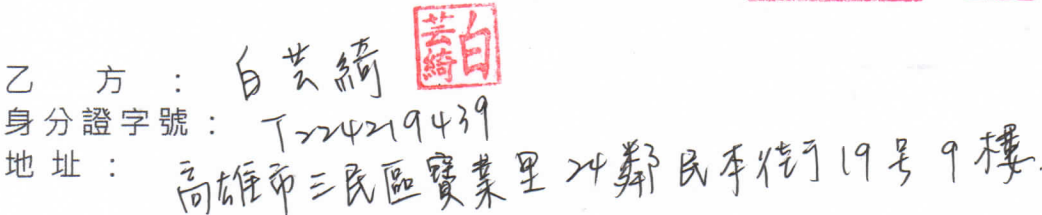 乙方：白芸綺 白芸綺
身分證字號：T224219439
地址：高雄市三民區寶業里24鄰民本街19号9樓